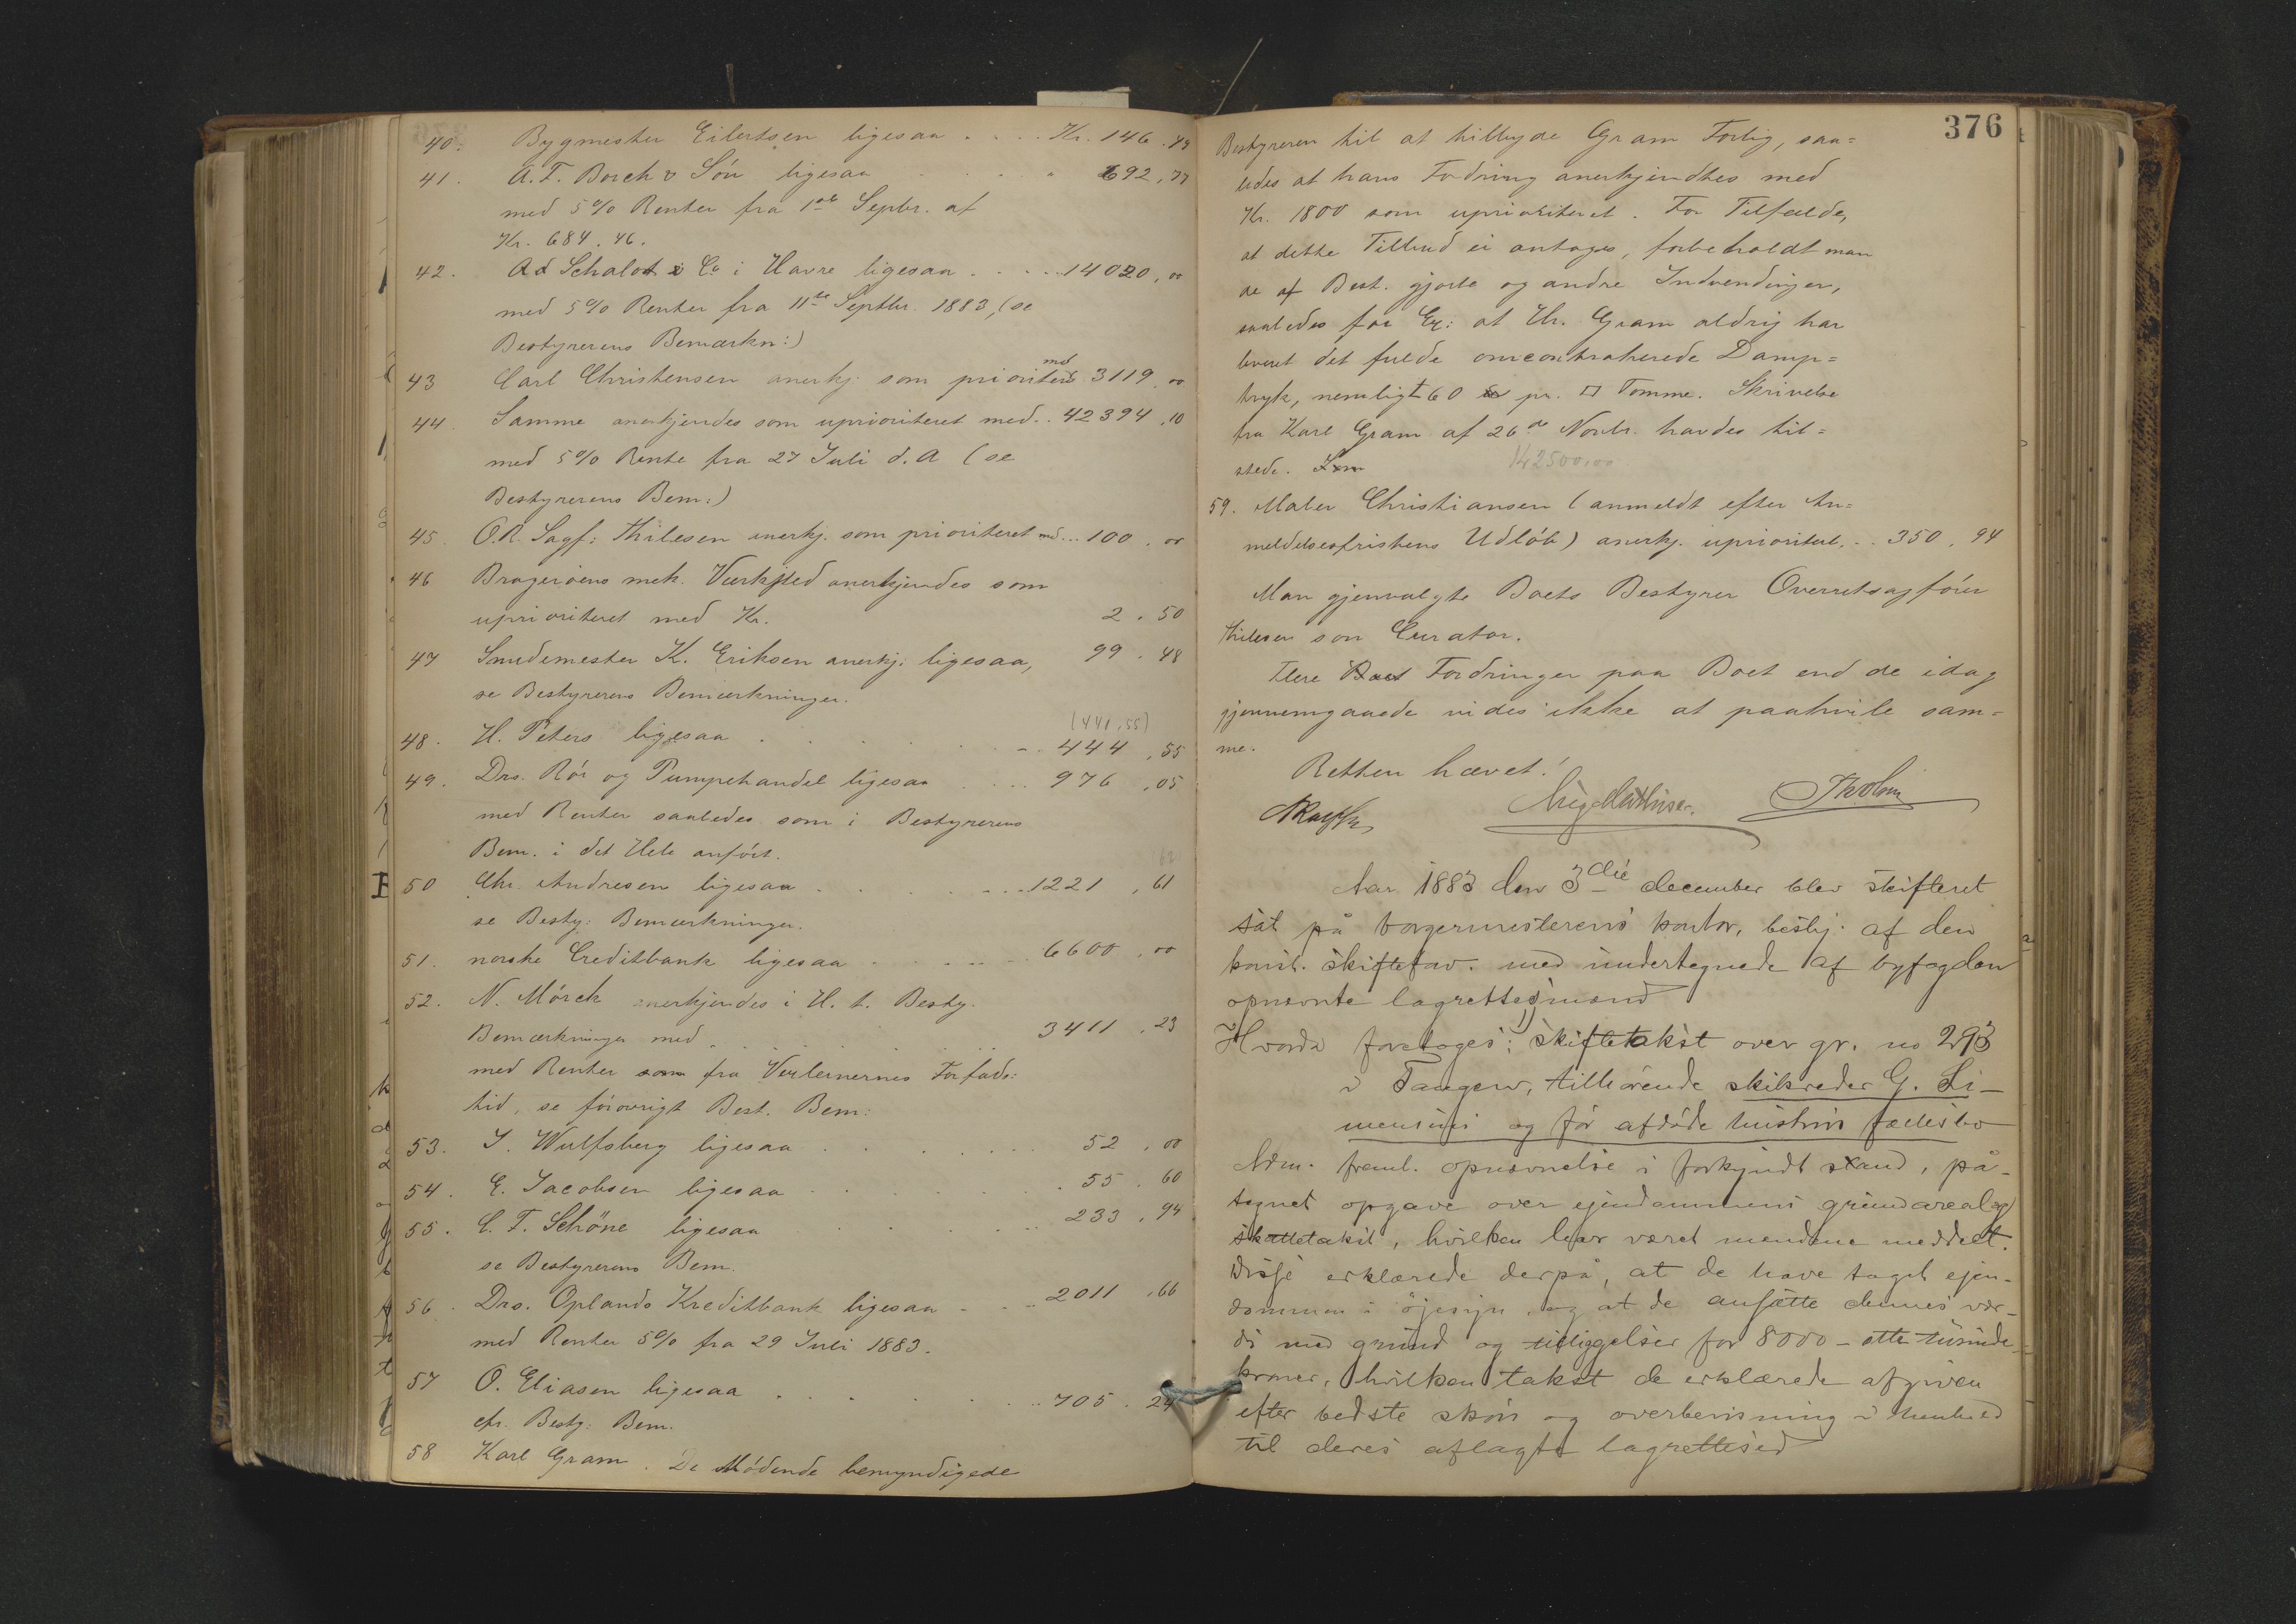 40. Bygmester Eilertsen ligesaa . . . . Kr. 146.49
41. A. F. Borch & Sön ligesaa . . . . " 692,77
med 5% Renter fra 1ste Septbr. af
Kr. 684.46.
42. Ad Schalot & Co i Havre ligesaa . . . . . 14020,00
med 5% Renter fra 11te Septbr. 1883, (se
Bestyrerens Bemærkn:)
43 Carl Christensen anerkj. som prioriteret med 3119.00
44. Samme anerkjendes som uprioriteret med . . 42394,10
med 5% Rente fra 27 Juli d. A (se
Bestyrerens Bem:)
45. O.R. Sagf: Thilesen anerkj. som prioriteret md... 100.00
46 Bragerøens mek. Værksted anerkjendes som
uprioriteret med Kr. 2.50
47 Smedemester K. Eriksen anerkj: ligesaa, 99.48
se Bestyrerens Bemærkninger.
(441,55)
48. H. Peters ligesaa . . . . . . 444,55
49. Drs. Rör og Pumpehandel ligesaa . . . . 976,05
med Renter saaledes som i Bestyrerens
Bem. i det Hele anfört.
50 Chr. Andresen ligesaa . . . . . . . 1221,61
se Besty: Bemærkninger.
51. norske Creditbank ligesaa . . . . . . . 6600,00
52. N. Mörch anerkjendes i H. t. Besty.
Bemærkninger med . . . . . . . 3411.23
med Renter som fra Vexlernernes Forfalds:
tid, se forövrigt Best. Bem:
53. J. Wulfsberg ligesaa . . . . . . 52,00
54. E. Jacobsen ligesaa . . . . . . . 55.60
55. C. F. Schöne ligesaa . . . . 233,94
se Bestyrerens Bem.
56. Drs. Oplands Kreditbank ligesaa . . . 2011,66
med Renter 5% fra 29 Juli 1883.
57 O. Eliasen ligesaa . . . . . . . 705.24
cfr. Besty: Bem.
58 Karl Gram. De Mödende bemyndigede
376
Bestyreren til at tilbyde Gram Forlig, saa=
ledes at hans Fordring anerkjendtes med
Kr. 1800 som uprioriteret. For Tilfælde,
at dette Tilbud ei antages, forbeholdt man
de af Best. gjorte og andre Indvendinger,
saaledes for Ex: at Hr. Gram aldrig har
leveret det fulde omcontraherede Damp=
tryk, nemligt 60 pr. □ Tomme. Skrivelse
fra Karl Gram af 26de Novbr. havdes til=
stede. 142500,00
59. Maler Christiansen (anmeldt efter An=
meldelsesfristens Udlöb) anerkj. uprioritet. . . 350,94
Man gjenvalgte Boets Bestyrer Overretssagförer
Thilesen som Curator.
Flere Boet Fordringer paa Boet end de idag
gjennemgaaede vides ikke at paahvile sam=
me.
Retten hævet!
Aar 1883 den 3die december blev skifteret
sat på borgermesterens kontor, bestyr. af den
konst. skiftefav. med undertegnede af byfogden
opnævnte lagrettesmænd
Hvorda foretoges: skiftetakst over gr. no 293
i Tangen, tilhörende skibsreder G. Si-
mensens og for afdöde hustrus fællesbo
Adm. freml. opnævnelse i forkyndt stand, på-
tegnet opgave over ejendommens grundareal og
skattetakst, hvilken har været mændene meddelt.
Disse erklærede derpå, at de have taget ejen-
dommen i öjesyn, og at de ansætte dennes vær-
di med grund og tilliggelser for 8000 - otte tusinde
kroner, hvilken takst de erklærede afgiven
efter bedste skön og overbevisning i henhold
til deres aflagte lagrettesed